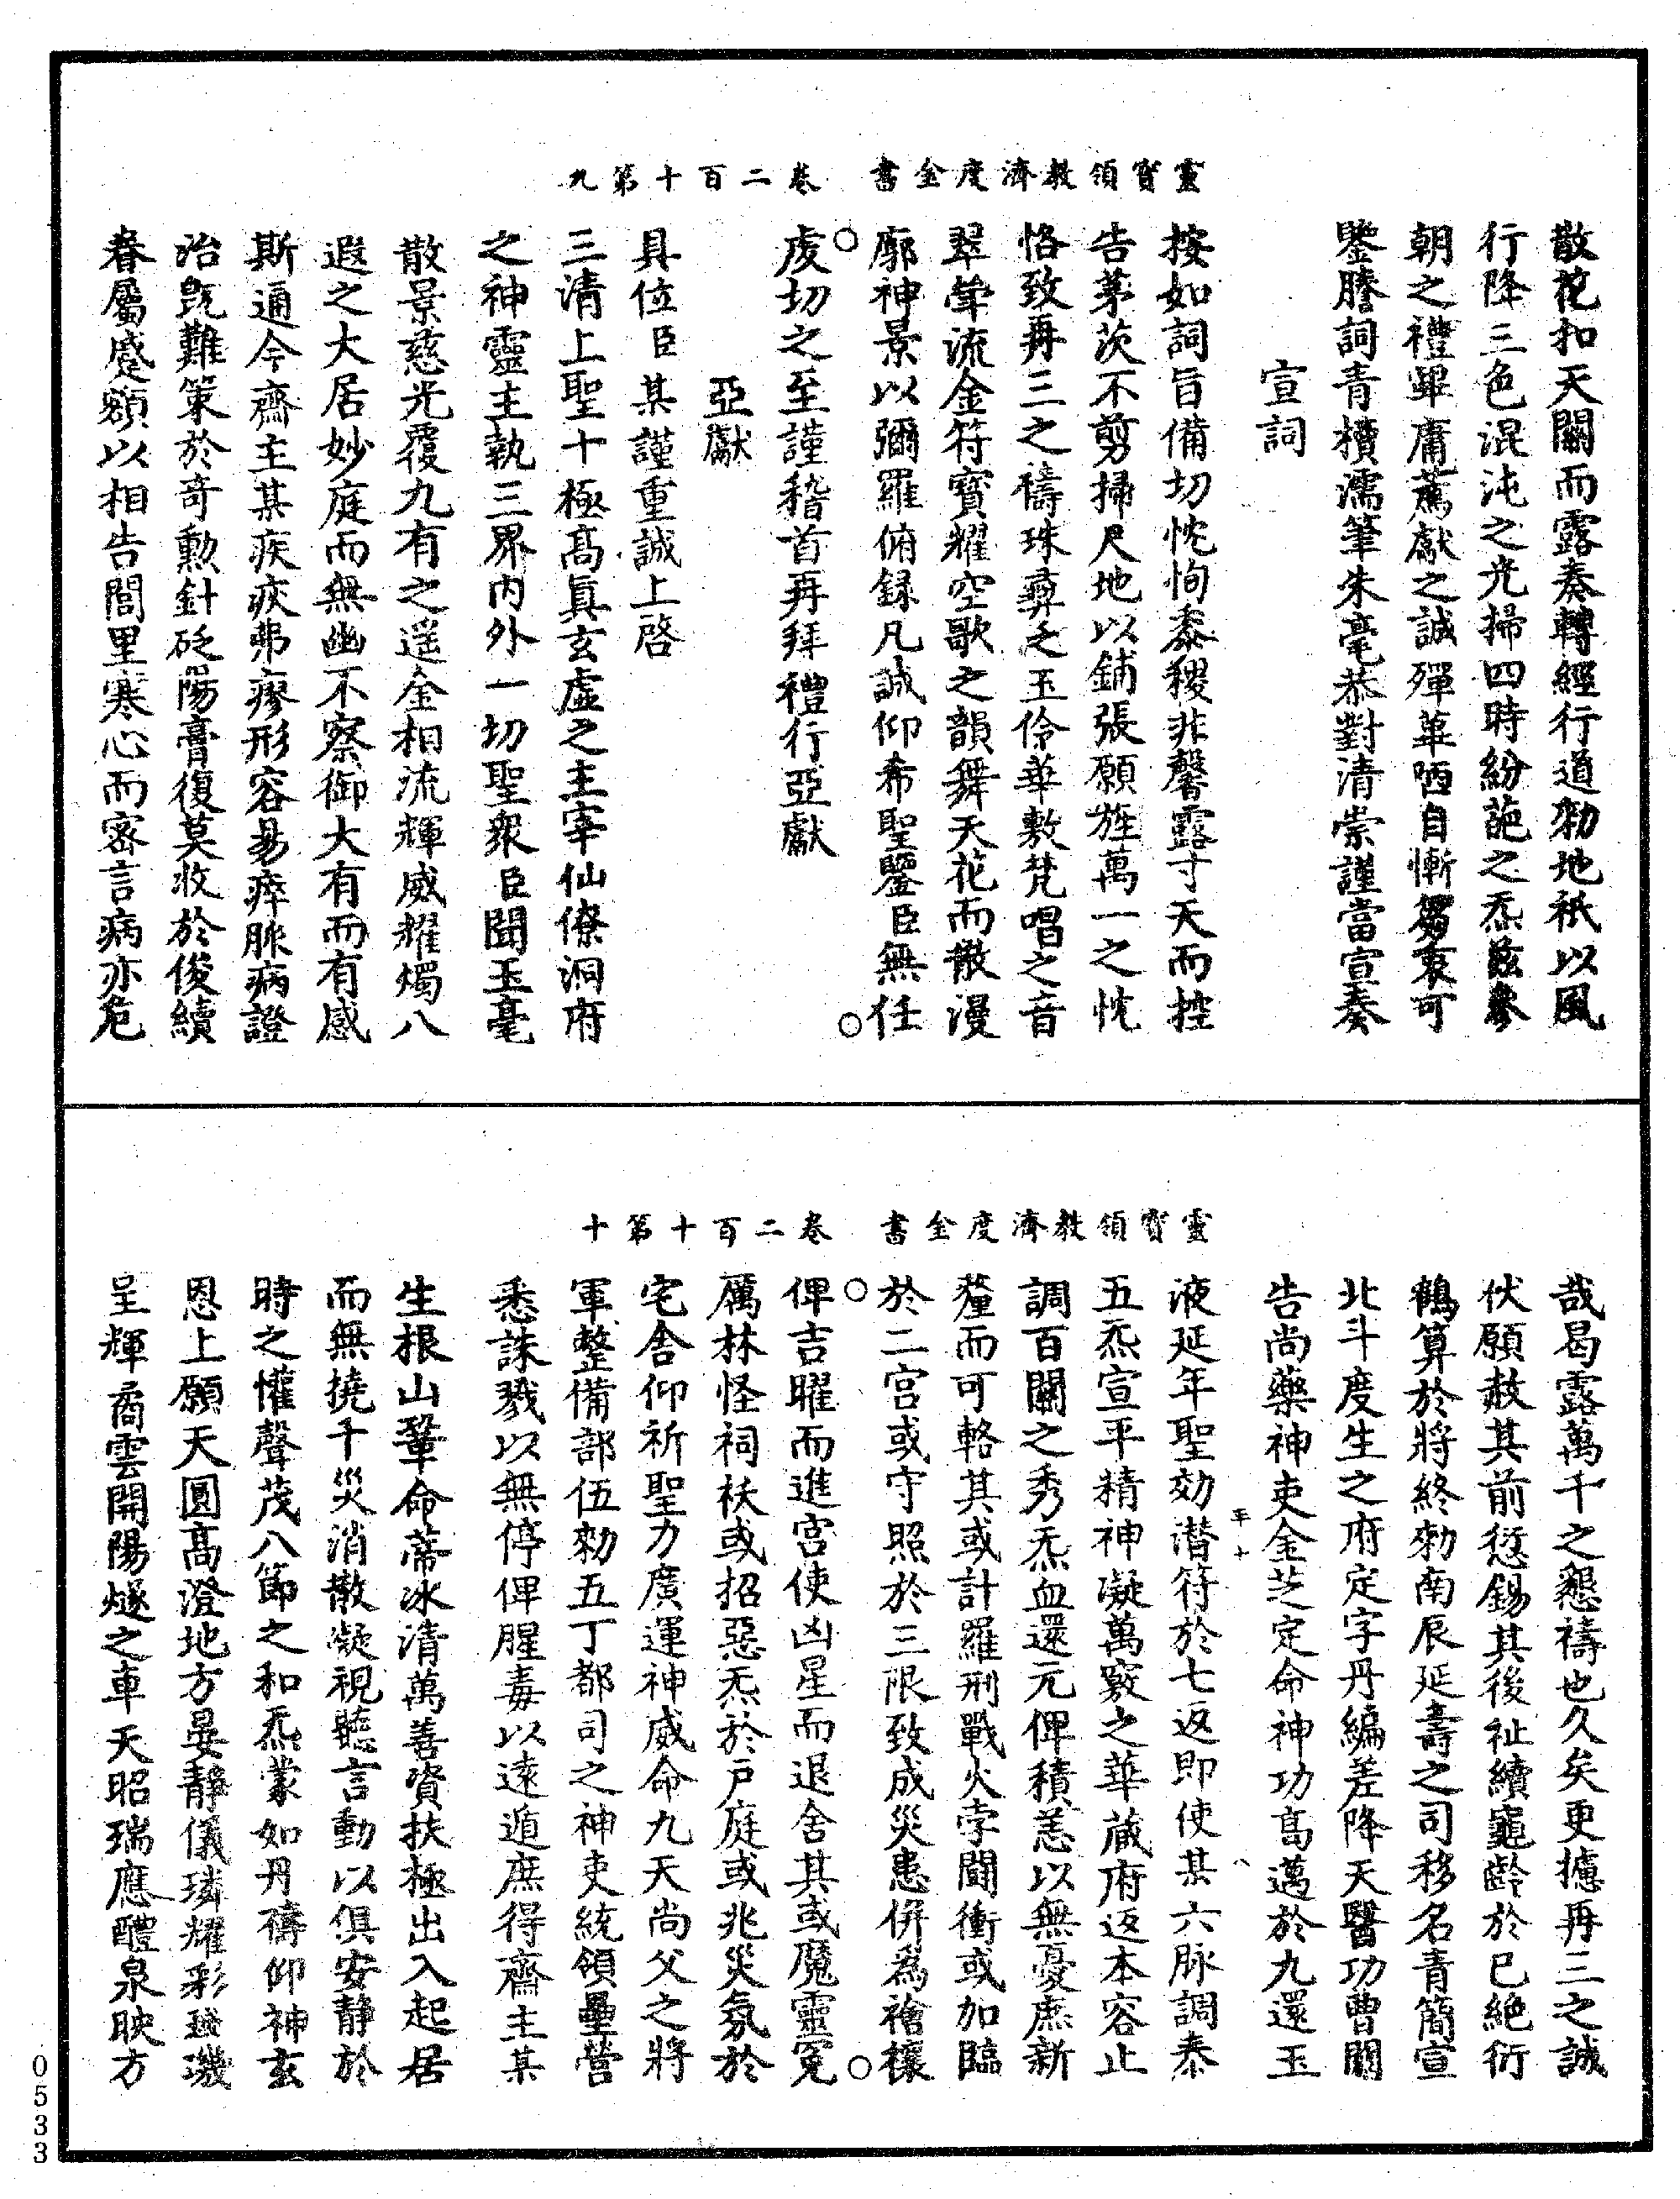 靈寶領教濟度金書 卷二百十第九
散花和天關而露奏轉經行道勑地祇以風
行降三色混沌之光掃四時紛葩之炁兹叅
朝之禮畢庸薦獻之誠殫菲哂自慚芻衷可
鑒謄詞青櫝濡筆朱毫恭對清崇謹當宣奏
宣詞
按如詞旨備切忱恂黍稷非馨露寸天而控
告茅茨不剪掃尺地以鋪張願旌萬一之忱
恪致再三之禱珠彛之玉伶華敷梵唱之音
翠犖流金符寳耀空歌之韻舞天花而散漫
廓神景以彌羅俯録凡誠仰希聖鑒臣無任
虔切之至謹稽首再拜禮行亞獻
亞獻
具位臣某謹重誠上啓
三清上聖十極高眞玄虛之主宰仙僚洞府
之神靈主執三界内外一切聖衆臣聞玉毫
散景慈光覆九有之遥金相流輝威耀燭八
遐之大居妙庭而無幽不察御大有而有感
斯通今齋主某疾疢弗瘳形容易瘁脉病證
治旣難策於奇勲針砭陽膏復莫收於俊績
眷屬感額以相告閭里寒心而密言病亦危
靈寶領教濟度金書 卷二百十第十
哉曷露萬千之懇禱也久矣更攄再三之誠
伏願赦其前愆錫其後祉續龜齡於已絶衍
鶴算於將終勑南辰延壽之司移名青簡宣
北斗度生之府定字丹編差降天醫功曹關
告尚藥神吏金芝定命神功高邁於九還玉
液延年聖効潜符於七返即使某六脉調泰
五炁宣平精神凝萬竅之華蔵府返本容止
調百關之秀炁血還元俾積恙以無憂庶新
釐而可輅其或計羅刑戰火孛鬪衝或加臨
於二宮或守照於三限致成災患併爲禬禳
俾吉曜而進宮使凶星而退舍其或魔靈寃
厲林怪祠袄或招惡炁於戸庭或兆災氛於
宅舍仰祈聖力廣運神威命九天尚父之將
軍整備部伍勑五丁都司之神吏統領壘營
悉誅戮以無停俾腥毒以遠遁庶得齋主某
生根山鞏命蒂冰清萬善資扶極出入起居
而無撓千災消散凝視聽言動以俱安静於
時之懽聲茂八節之和炁蒙如丹禱仰神玄
恩上願天圓高澄地方晏靜儀璘耀彩璇璣
呈輝矞雲開陽燧之車天昭瑞應醴泉映方
0533